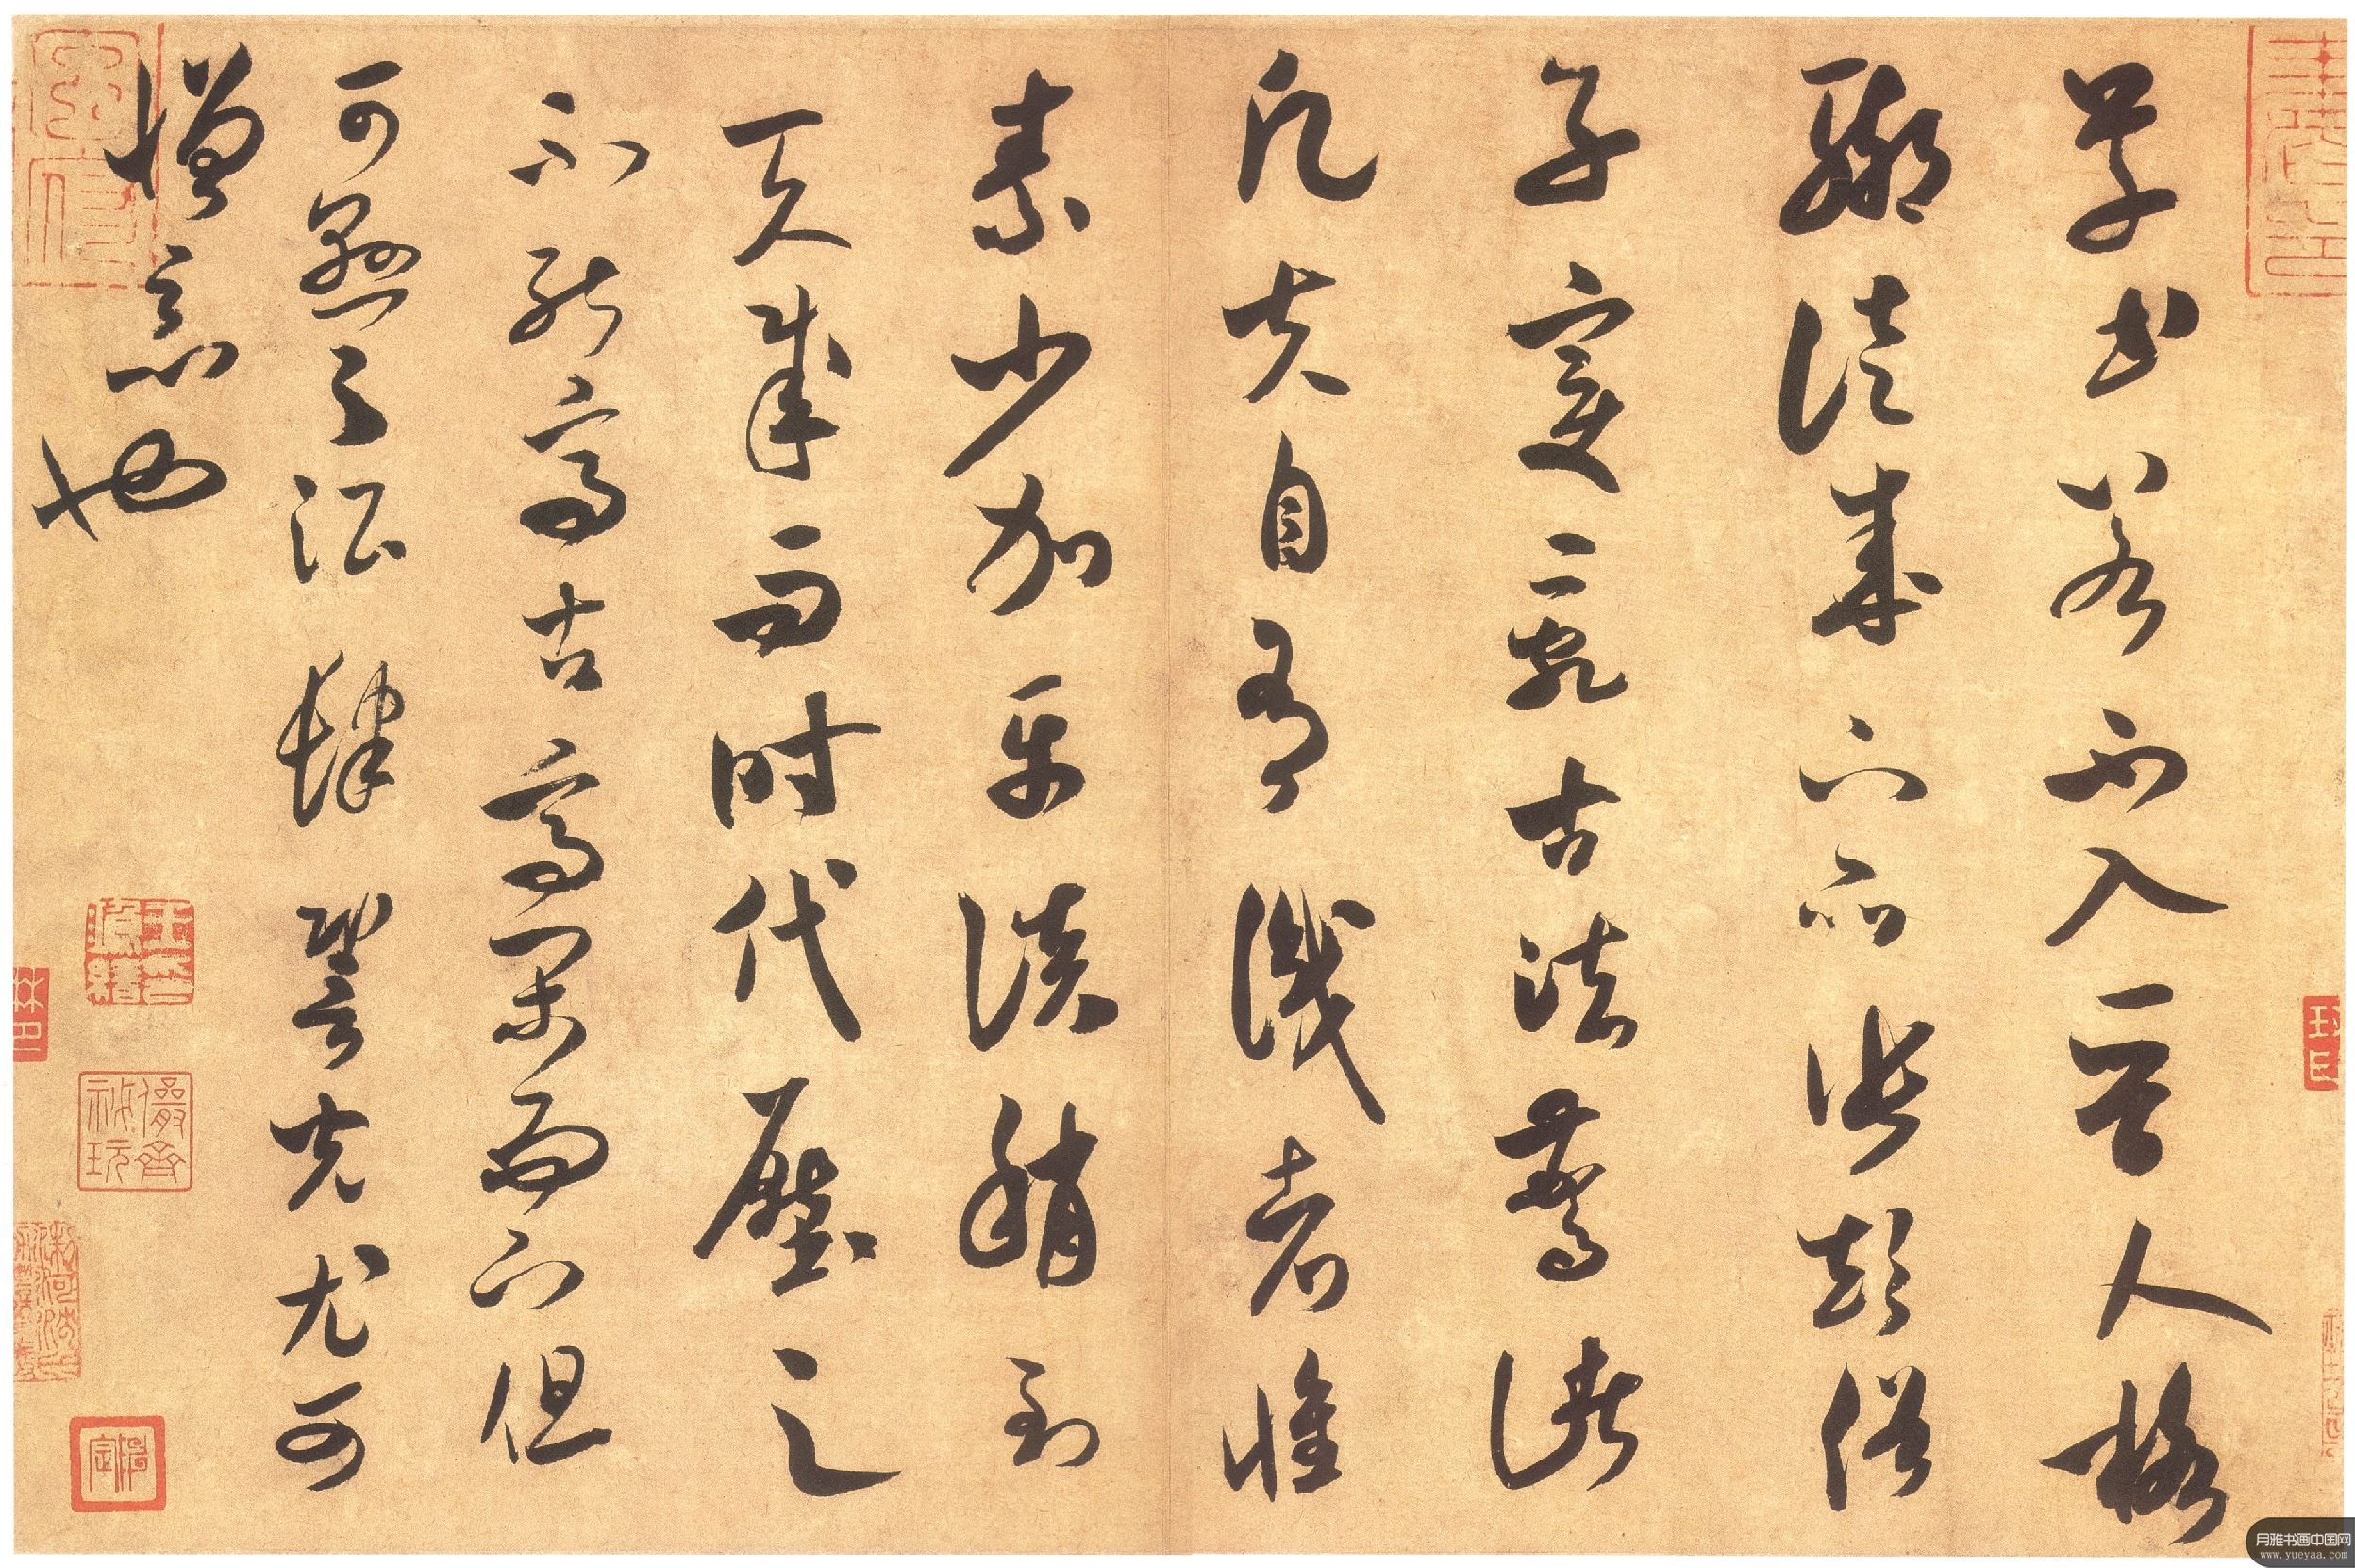 草书若不入晋人格
聊徒成下品张颠俗
子变乱古法惊诸
凡夫自有识者怀
素少加平淡稍到
天成而时代压之
不能高古高闲而下但
可悬之酒肆䛒光尤可
憎恶也
月雅书画中国网
www.yueyaa.com